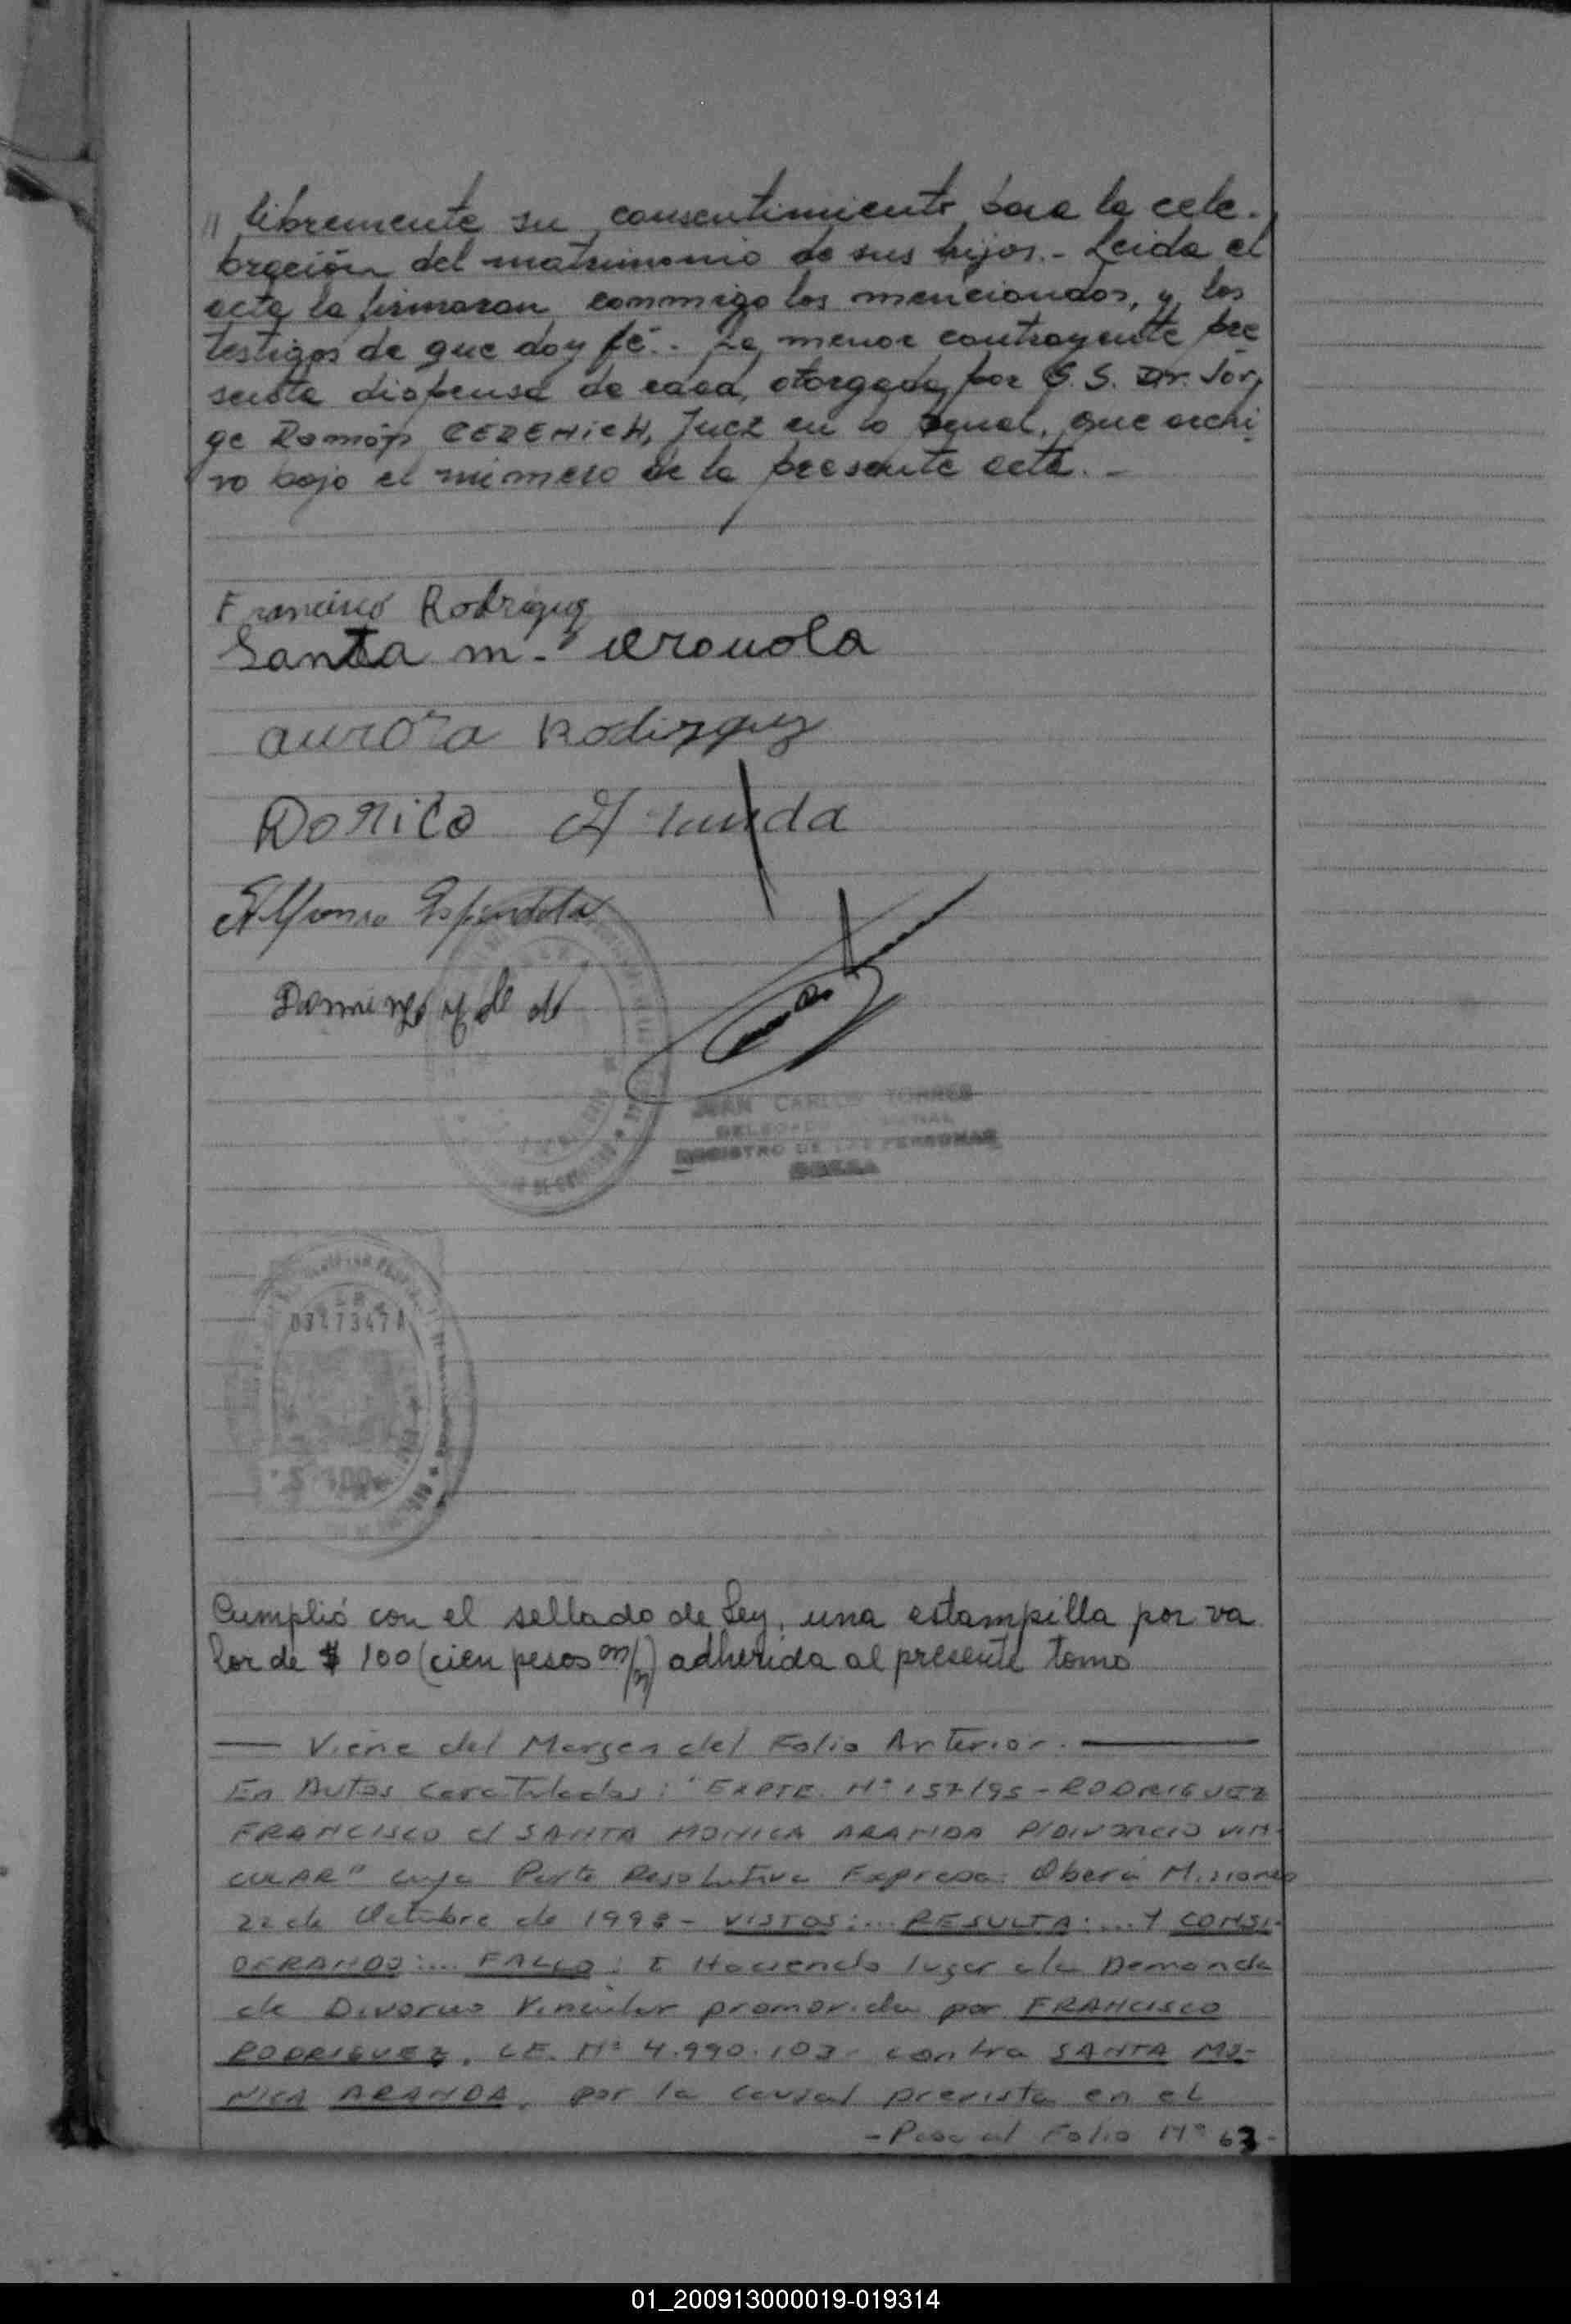 // libremente su consentimiento para la cele-
bración del matrimonio de sus hijos.- Leida el
acta la firmaron conmmigo los mencionados, y los
testigos de que doy fé.- La menor contrayente pre
senta dispensa de edad, otorgada por S. S. Dr. Jor,
ge Ramón CEZENICH, Juez en lo Penal, que archi
vo bajo el número de la presente acta.-
Francisco Rodriguez
Santa m.
aurora Rodizguez
Alfonso Espindola
Domingo
JUAN CARLOS TORRES
REGISTRO DE LAS PERSONAS
OBERA
0347347A
$ 100
Cumplió con el sellado de Ley, una estampilla por va
lor de $ 100 (cien pesos m/n) adherida al presente tomo
— Viene del Margen del Folio Anterior. —
En Autos Caratulados: "EXPTE. Nº 157/95 - RODRIGUEZ
FRANCISCO c/ SANTA MONICA ARANDA P/DIVORCIO VIN-
CULAR" cuya Parte Resolutiva Expresa: Oberá Misiones
22 de Octubre de 1998 - VISTOS:... RESULTA:... Y CONSI-
DERANDO:... FALLO: I Haciendo lugar a la Demanda
de Divorcio Vincular promovida por FRANCISCO
RODRIGUEZ, L.E. Nº 4.990.103 contra SANTA MO-
NICA ARANDA, por la causal prevista en el
- Pasa al Folio Nº 63-
01_200913000019-019314